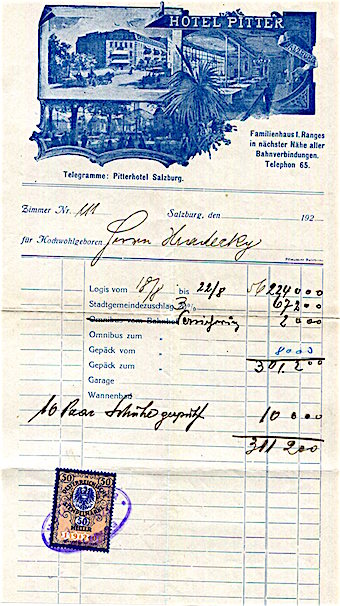 HOTEL PITTER
Familienhaus I. Ranges
in nächster Nähe aller
Bahnverbindungen.
Telephon 65.
Telegramme: Pitterhotel Salzburg.
Zimmer Nr. 111 Salzburg, den 192
für Hochwohlgeboren Herrn Hradecky
Logis vom 18/8 bis 22/8 56 224000
Stadtgemeindezuschlag 3 % 67200
Omnibus vom Bahnhof 2000
Omnibus zum "
Gepäck vom " 8000
Gepäck zum " 301.200
Garage
Wannenbad
10 Paar Schuhe geputzt 10000
311200
50 50
50